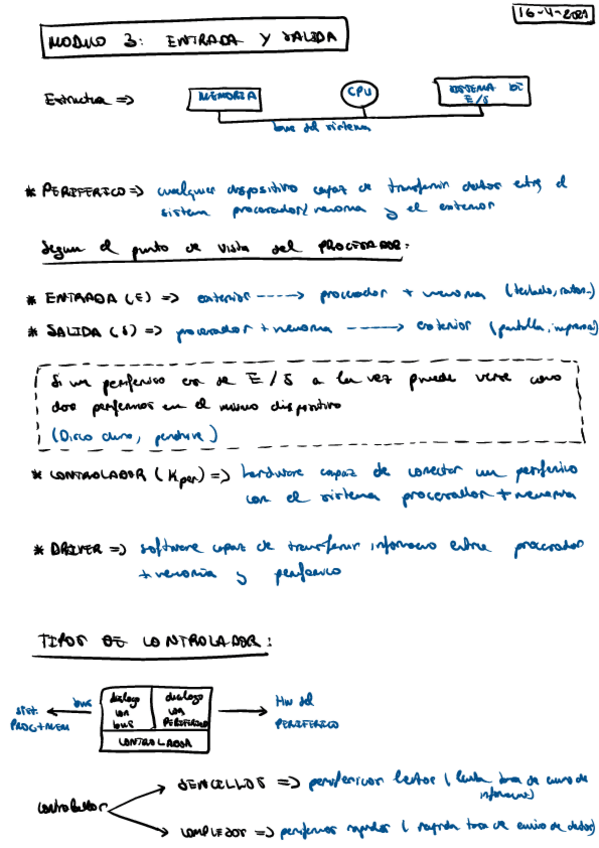 16-4-2021
MODULO 3: ENTRADA Y SALIDA
Estructura => MEMORIA CPU SISTEMA DE
E/S
bus del sistema
* PERIFERICO => cualquier dispositivo capaz de transferir datos entre el
sistema procesador/memoria y el exterior
Segun el punto de vista del PROCESADOR:
* ENTRADA (E) => exterior ----> procesador + memoria (teclado, raton..)
* SALIDA (S) => procesador + memoria ----> exterior (pantalla, impresora)
Si un periferico es de E/S a la vez puede verse como
dos perifericos en el mismo dispositivo
(Disco duro, pendrive)
* CONTROLADOR (Kper) => hardware capaz de conectar un periferico
con el sistema procesador + memoria
* DRIVER => software capaz de transferir informacion entre procesador
+ memoria y periferico
TIPOS DE CONTROLADOR:
SIST.
PROC+MEM
bus
dialogo
con
bus
dialogo
con
PERIFERICO
CONTROLADOR
HW del
PERIFERICO
controlador
SENCILLOS => perifericos lentos (lenta tasa de envio de
informacion)
COMPLEJOS => perifericos rapidos (rapida tasa de envio de datos)